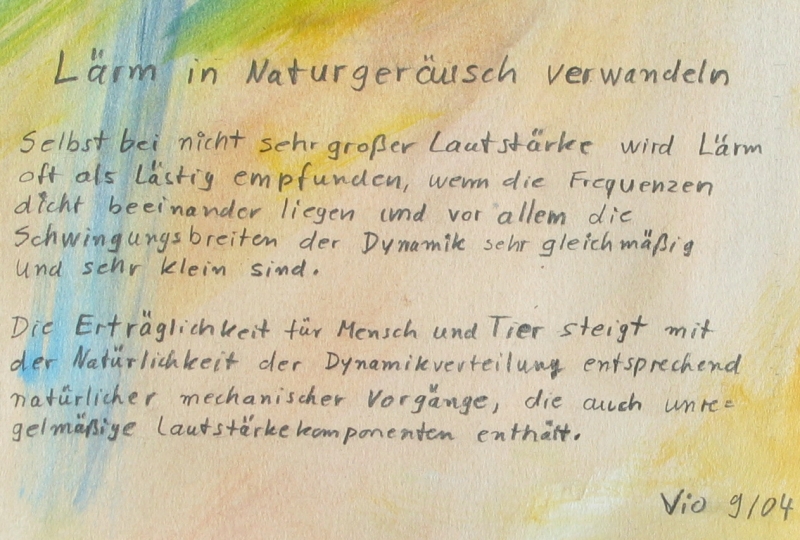 Lärm in Naturgeräusch verwandeln
Selbst bei nicht sehr großer Lautstärke wird Lärm
oft als lästig empfunden, wenn die Frequenzen
dicht beeinander liegen und vor allem die
Schwingungsbreiten der Dynamik sehr gleichmäßig
und sehr klein sind.
Die Erträglichkeit für Mensch und Tier steigt mit
der Natürlichkeit der Dynamikverteilung entsprechend
natürlicher mechanischer Vorgänge, die auch unre=
gelmäßige Lautstärkekomponenten enthält.
Vio 9/04